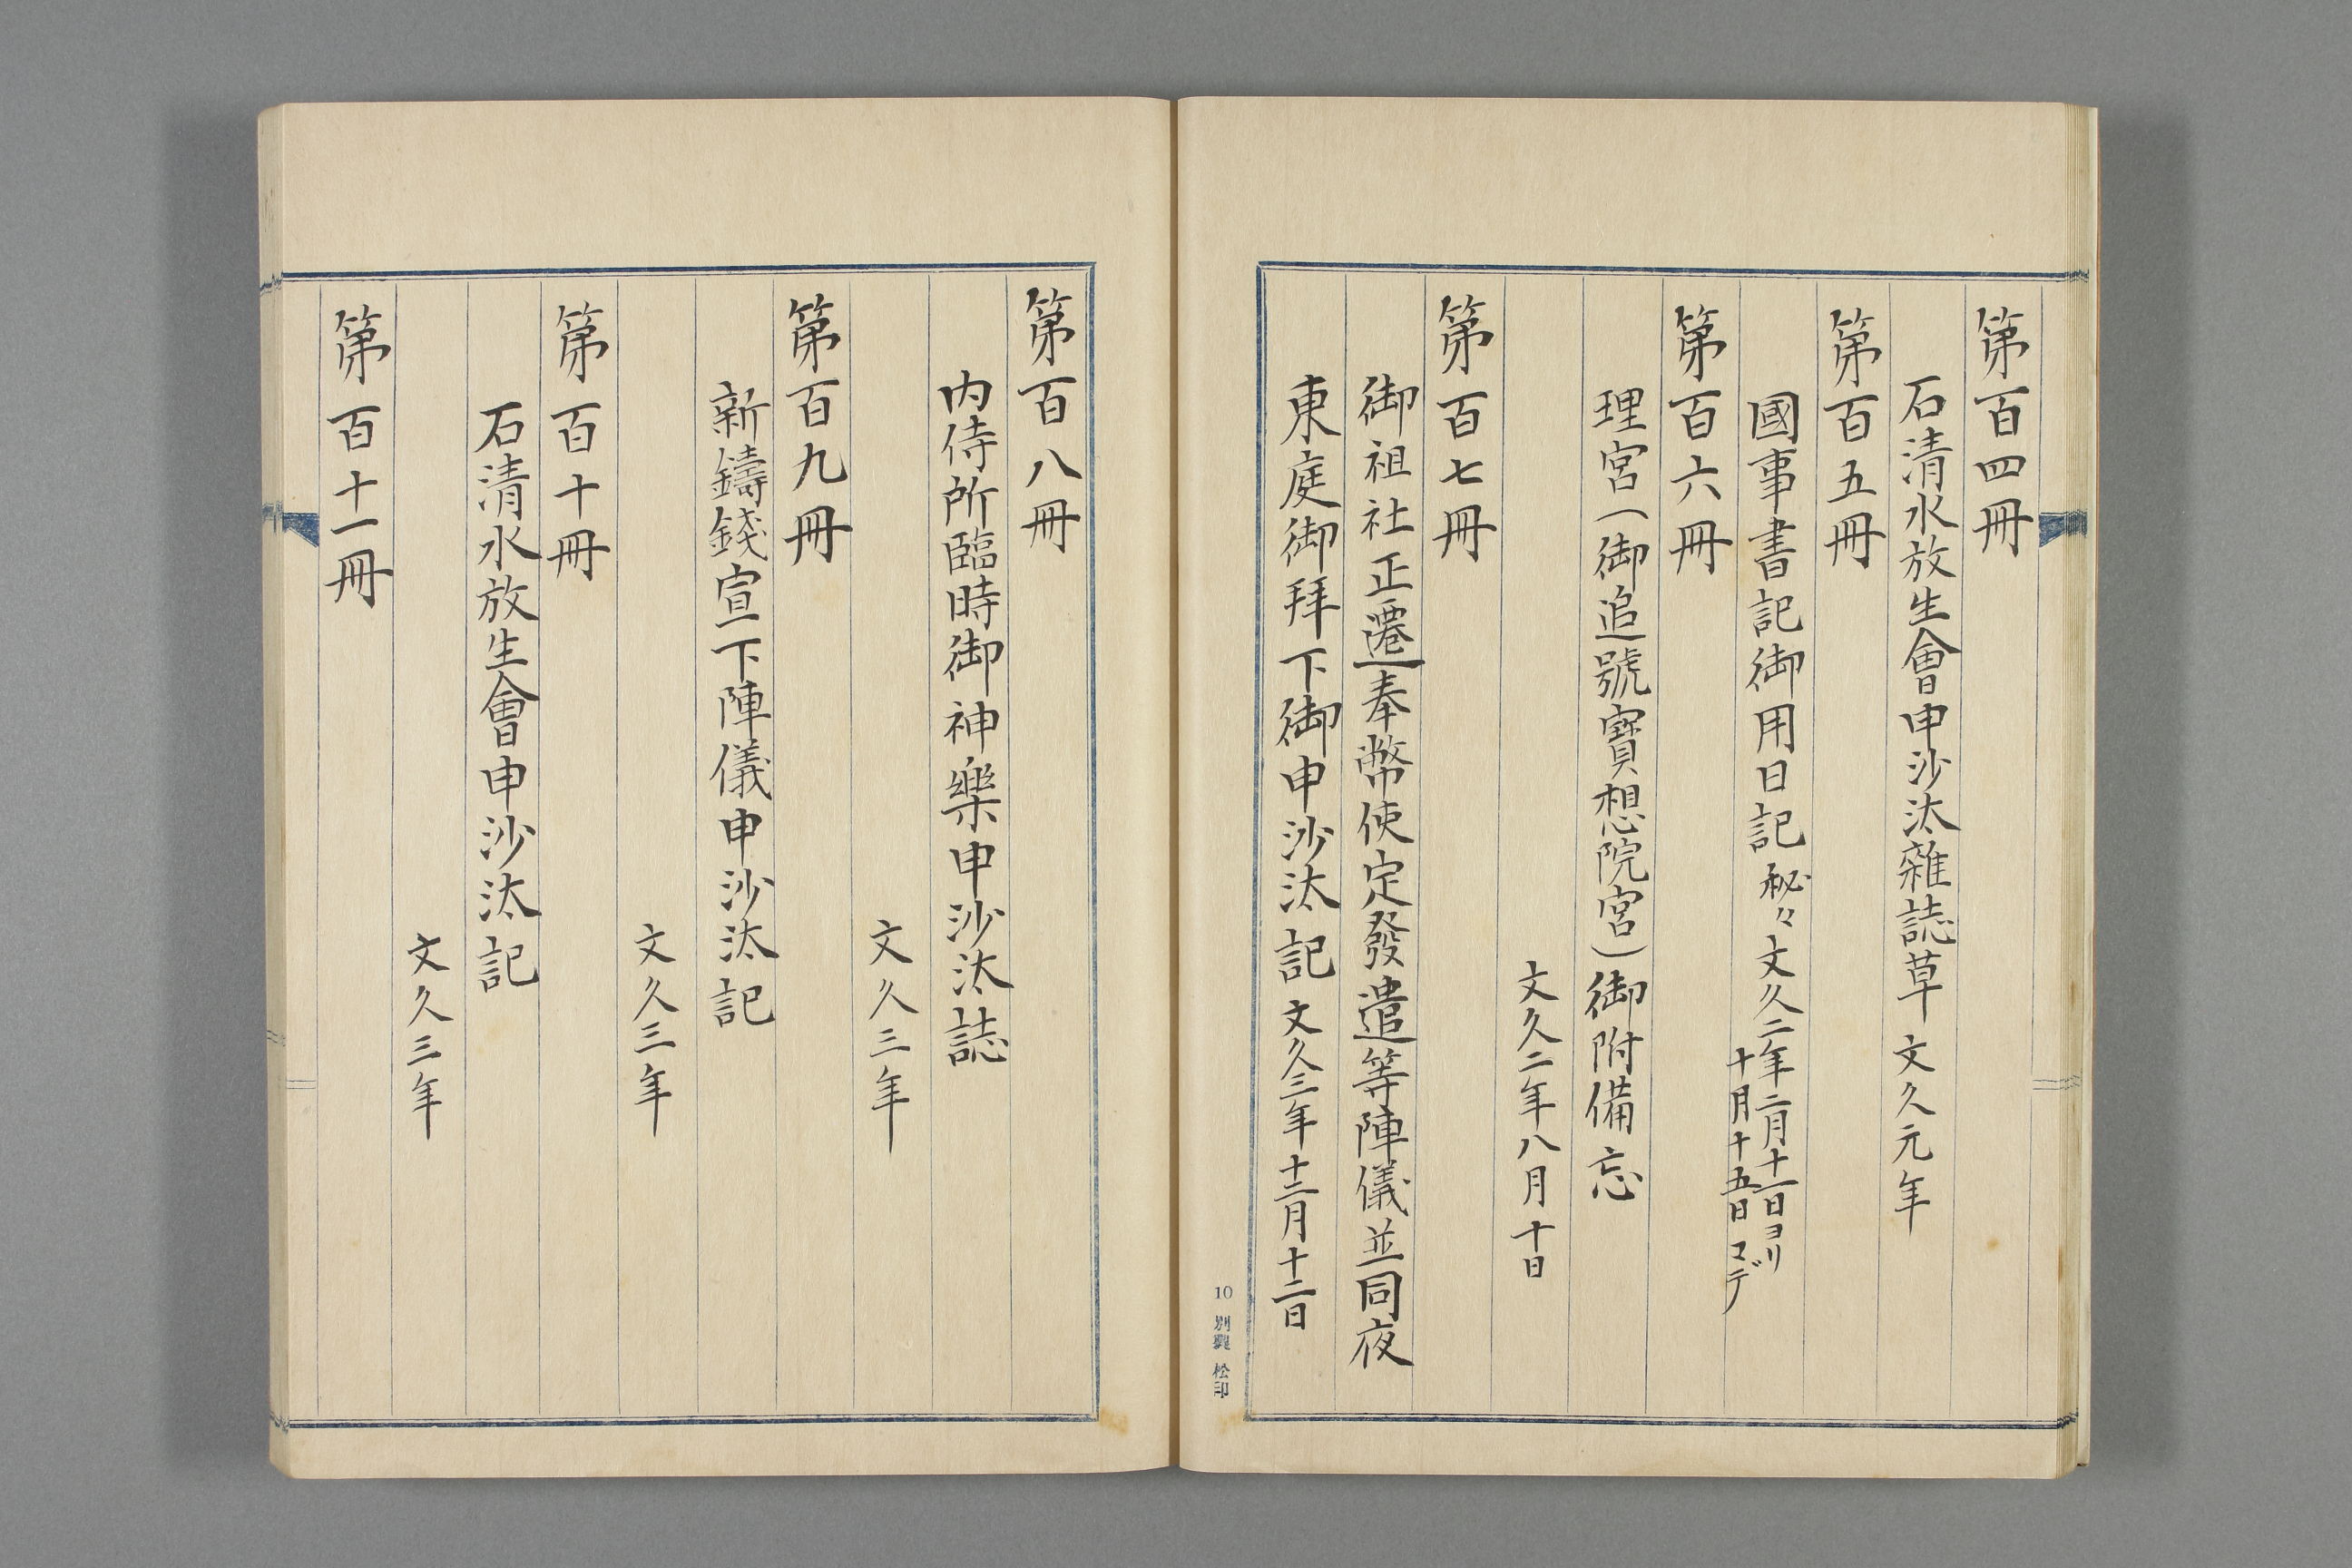 第百四冊
石清水放生會申沙汰雜誌草 文久元年
第百五冊
國事書記御用日記 秘々 文久二年二月十一日ヨリ
十月十五日マデ
第百六冊
理宮(御追號寶想院宮)御附備忘
文久二年八月十日
第百七冊
御祖社正遷奉幣使定發遣等陣儀並同夜
東庭御拜下御申沙汰記 文久三年十二月十二日
10 別製 松印
第百八冊
内侍所臨時御神樂申沙汰誌
文久三年
第百九冊
新鑄錢宣下陣儀申沙汰記
文久三年
第百十冊
石清水放生會申沙汰記
文久三年
第百十一冊